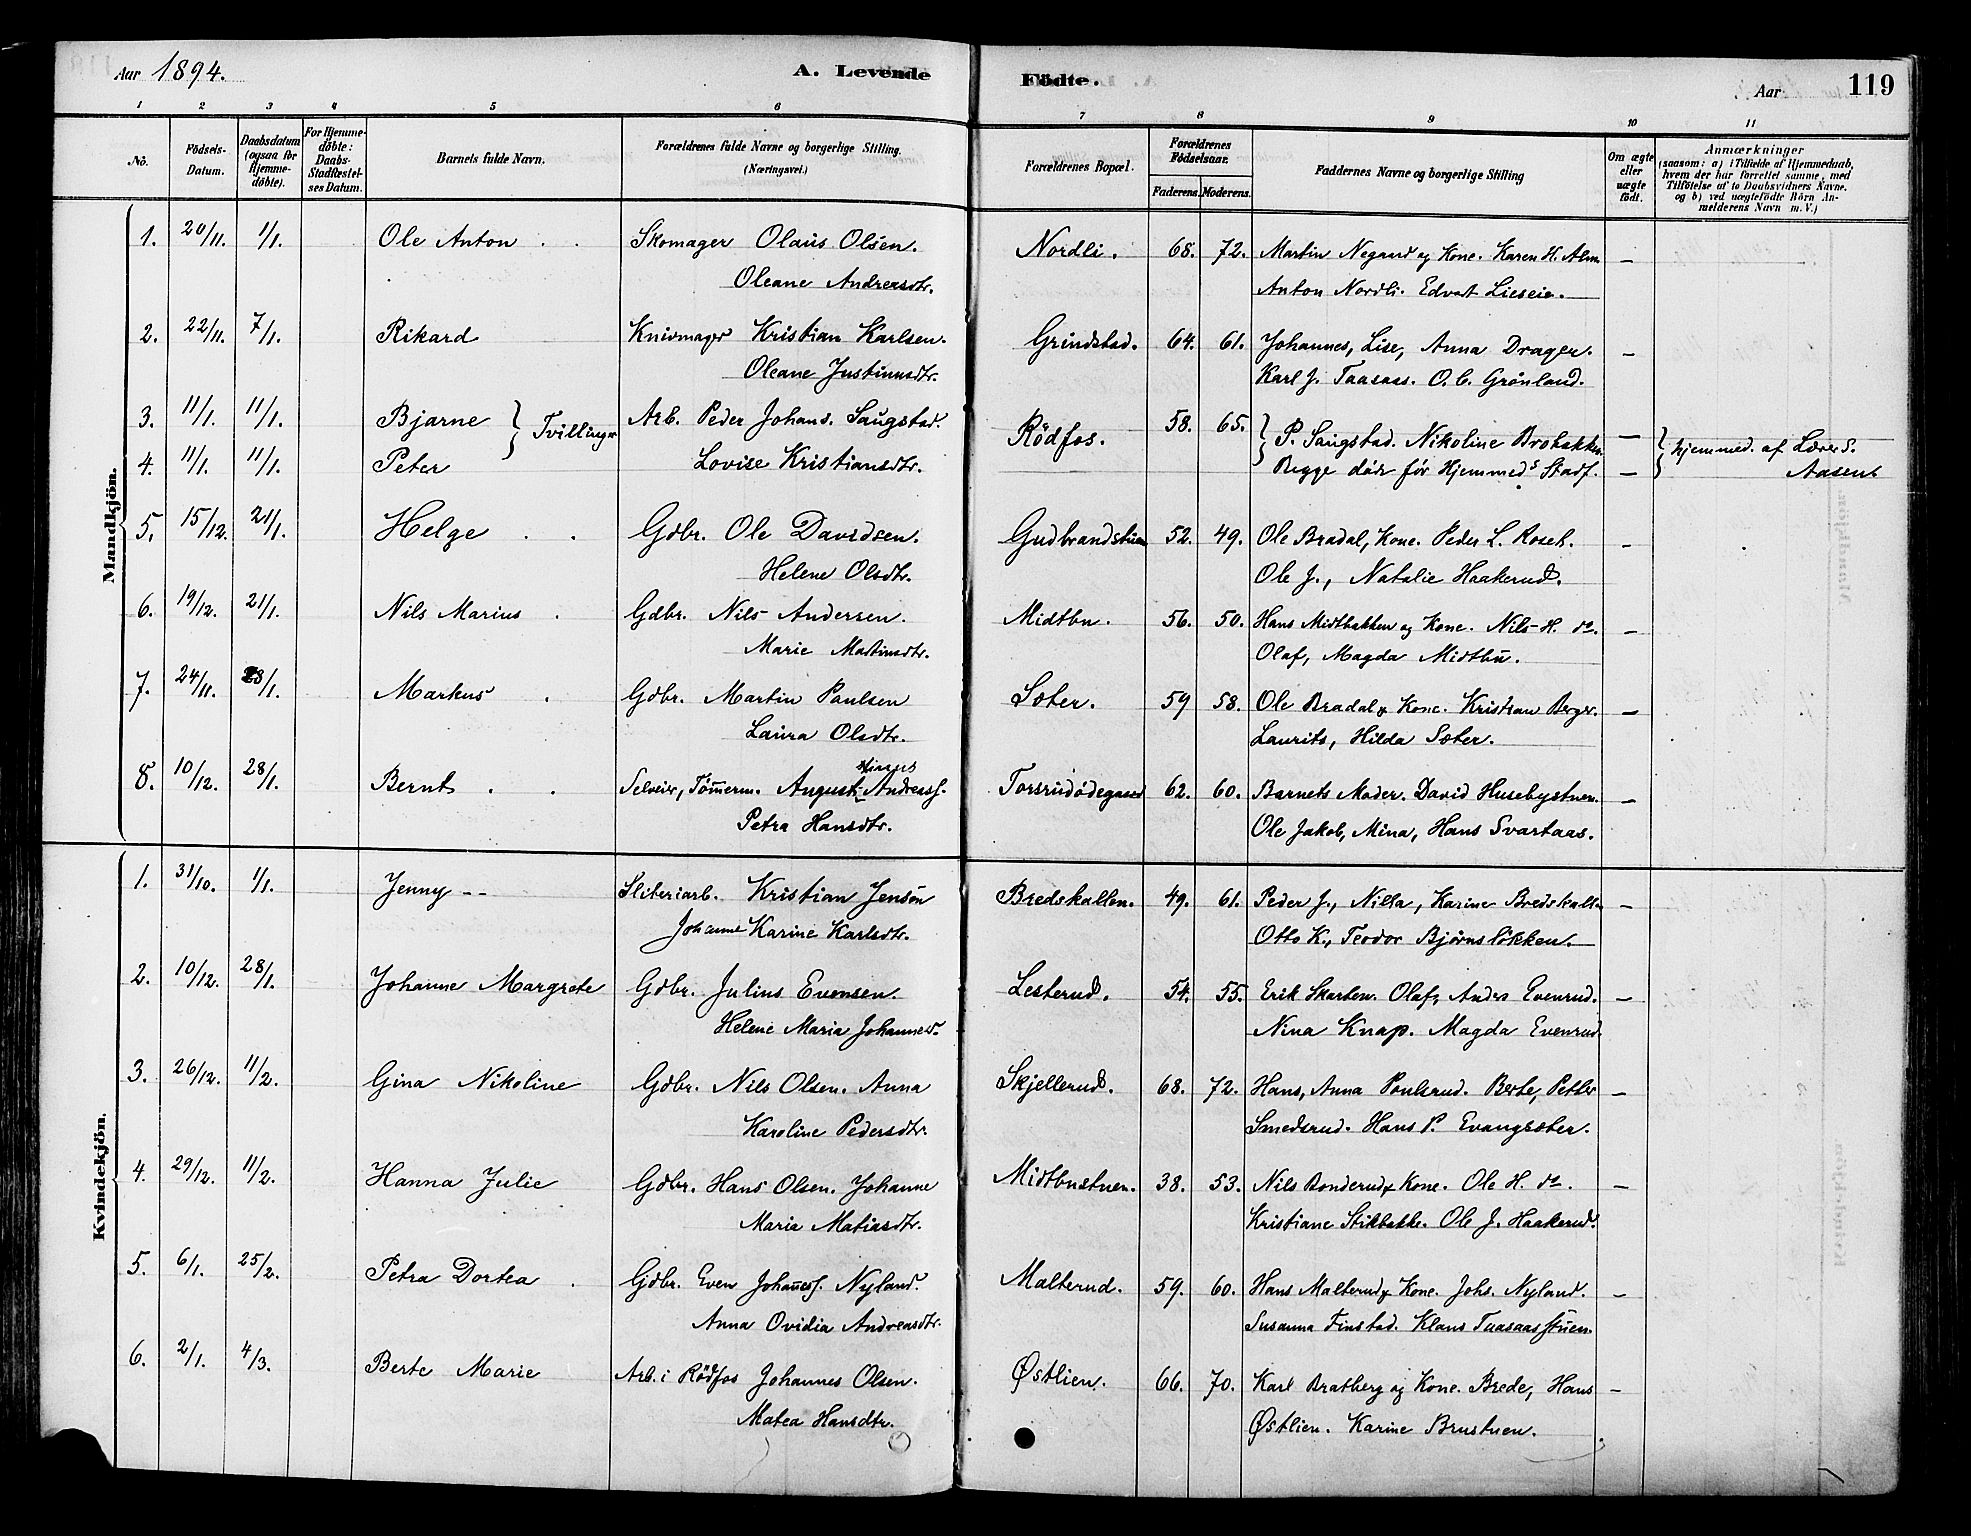 Aar 1894. A. Levende Födte. Aar 119
1 2 3 4 5 6 7 8 9 10 11
No. Födsels-Datum. Daabsdatum (ogsaa for Hjemmedöbte). For Hjemmedöbte: Daabs-Stadfæstelses Datum. Barnets fulde Navn. Forældrenes fulde Navne og borgerlige Stilling. (Næringsvei.) Forældrenes Bopæl. Forældrenes Födselsaar. Faderens. Moderens. Faddernes Navne og borgerlige Stilling Om ægte eller uægte födt. Anmærkninger (saasom: a) i Tilfælde af Hjemmedaab, hvem der har forrettet samme, med Tilföielse af to Daabsvidners Navne. og b) ved uægtefödte Börn Anmelderens Navn m.V.)
Mandkjön.
1. 20/11. 1/1. Ole Anton . . Skomager Olaus Olsen. Nordli. 68. 72. Martin Negaard og Kone. Karen H. Alm —
Oleane Andreasdtr. Anton Nordli. Edvart Lieseie.
2. 22/11. 7/1. Rikard Knivmager Kristian Karlsen. Grindstad. 64. 61. Johannes, Lise, Anna Drager. —
Oleane Justinusdtr. Karl J. Taasaas. O. C. Grønland.
3. 11/1. 11/1. Bjarne } Tvillinger Arb. Peder Johans. Saugstad. Rödfos. 58. 65. } P. Saugstad. Nikoline Brobakken. — } hjemmed. af Lærer S.
4. 11/1. 11/1. Peter Lovise Kristiansdtr. Begge döde før Hjemmeds Stadf. — Aasen
5. 15/12. 21/1. Helge . . Gdbr. Ole Davidsen. Gudbrandstuen 52. 49. Ole Bradal, Kone. Peder L. Roset. —
Helene Olsdtr. Ole J., Natalie Haakerud.
6. 19/12. 21/1. Nils Marius . Gdbr. Nils Andersen. Midtbu. 56. 50. Hans Midtbakken og Kone. Nils H. do. —
Marie Matinsdtr. Olaf, Magda Midtbu.
7. 24/11. 28/1. Markus . Gdbr. Martin Paulsen Sæter. 59 58. Ole Bradal & Kone. Kristian Berger. —
Laura Olsdtr. Laurits, Hilda Sæter.
8. 10/12. 28/1. Bernt . . Selveier, Tömerm. August Andreass. Torsrudödegaard 62. 60. Barnets Moder. David Husebystuen. —
Petra Hansdtr. Ole Jakob, Mina, Hans Svartaas.
Kvindekjön.
1. 31/10. 1/1. Jenny -- Sliberiarb. Kristian Jensön Bredskallen. 49. 61. Peder J., Nilla, Karine Bredskall. —
Johanne Karine Karlsdtr. Otto K., Teodor Bjørnsløkken.
2. 10/12. 28/1. Johanne Margrete Gdbr. Julius Evensen. Lesterud. 54. 55. Erik Skarben. Olaf, Anders Evenrud. —
Helene Maria Johannesd. Nina Knap. Magda Evenrud.
3. 26/12. 11/2. Gina Nikoline Gdbr. Nils Olsen. Anna Skjellerud. 68. 72. Hans, Anna Poulsrud. Berte, Petter —
Karoline Pedersdtr. Smedsrud. Hans P. Evangsæter.
4. 29/12. 11/2. Hanna Julie Gdbr. Hans Olsen. Johanne Midtbustuen. 38. 53. Nils Bonderud & Kone. Ole H. do. —
Maria Matiasdtr. Kristiane Stikbakke. Ole J. Haakerud.
5. 6/1. 25/2. Petra Dortea . Gdbr. Even Johaness. Nyland. Malterud. 59. 60. Hans Malterud & Kone. Johs. Nyland. —
Anna Ovidia Andreasdtr. Susanna Finstad. Klaus Taasaasstuen.
6. 2/1. 4/3. Berte Marie Arb. i Rödfos Johannes Olsen. Østlien. 66. 70. Karl Bratberg og Kone. Brede, Hans —
Matea Hansdtr. Østlien. Karine Brustuen.